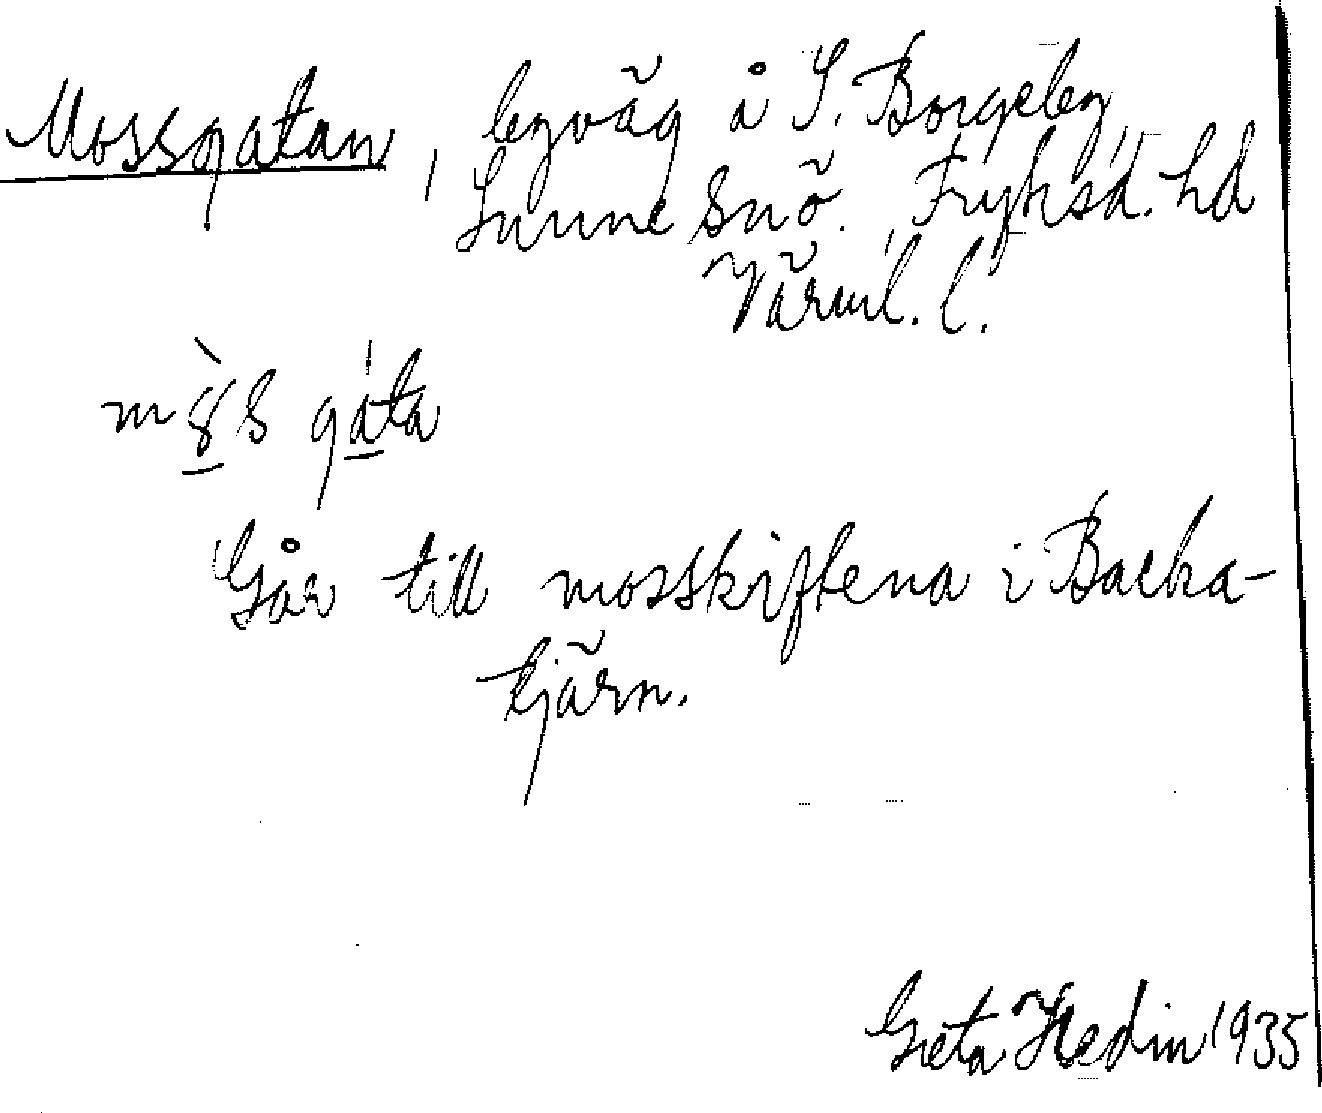 Mossgatan, byväg å S. Borgeby
Sunne sn, Fryksd. hd
Värml. l.
gata
Går till mosskiftena i Backa-
tjärn.
Greta Hedin 1935